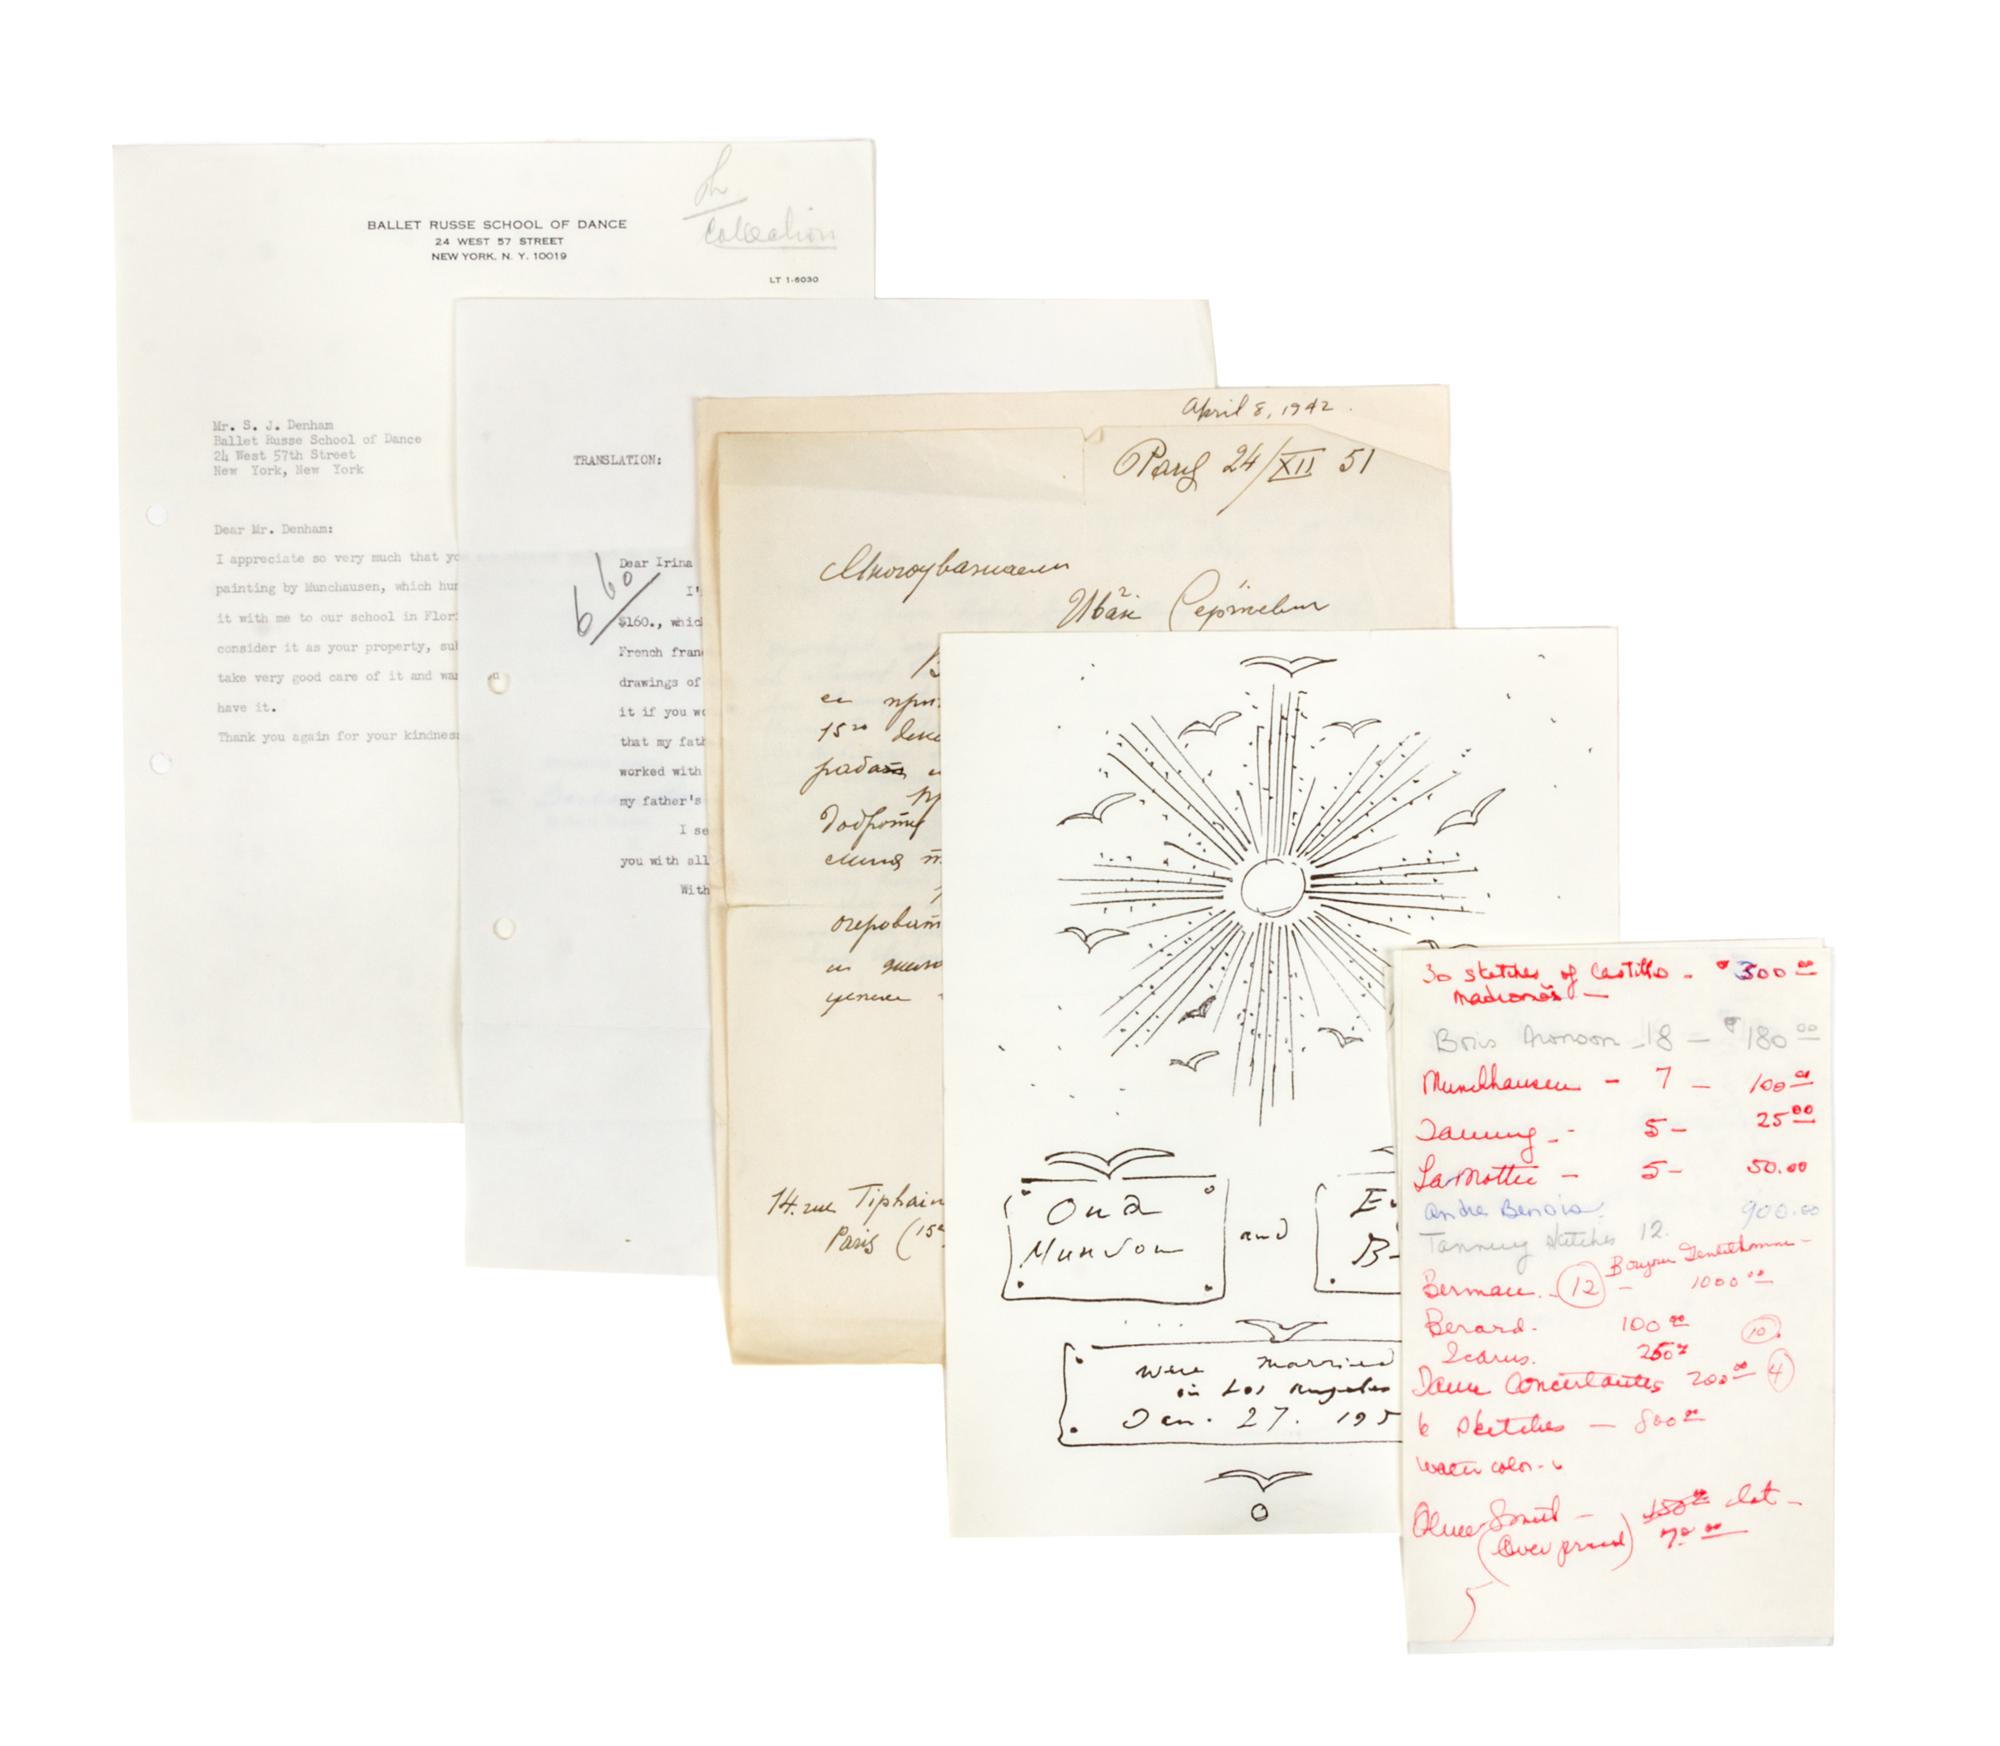 Collection
BALLET RUSSE SCHOOL OF DANCE
24 WEST 57 STREET
NEW YORK, N. Y. 10019
LT 1-6030
Mr. S. J. Denham
Ballet Russe School of Dance
24 West 57th Street
New York, New York
Dear Mr. Denham:
I appreciate so very much that yo
painting by Munchausen, which hun
it with me to our school in Flor
consider it as your property, su
take very good care of it and wa
have it.
Thank you again for your kindnes
TRANSLATION:
660
Dear Irina
I'
$160., whic
French fran
drawings of
it if you wo
that my fath
worked with
my father's
I se
you with all
With
April 8, 1942.
Paris 24/XII 51
Многоуважаемый
Иван Сергеевич
15го дека
14. rue Tiphain
Paris (15e
Ona
Munson
and
E
B
were married
in Los Angeles
Jan. 27. 195
30 sketches of Castillo - $300.00
Madronos -
Boris Aronson - 18 - $180.00
Munchhausen - 7 - 100.00
Tanning - - 5 - 25.00
LaMotte - 5 - 50.00
Andre Benois. 900.00
Tanning sketches 12.
Bourgeois Gentilhomme -
Berman. - 12 - 1000.00
Berard. 100.00 10.
Icarus. 250.
Danses Concertantes 200.00 4
6 sketches - 800.00
water color - 6
Oliver Smith - 150.00 lot -
(Over priced) 70.00